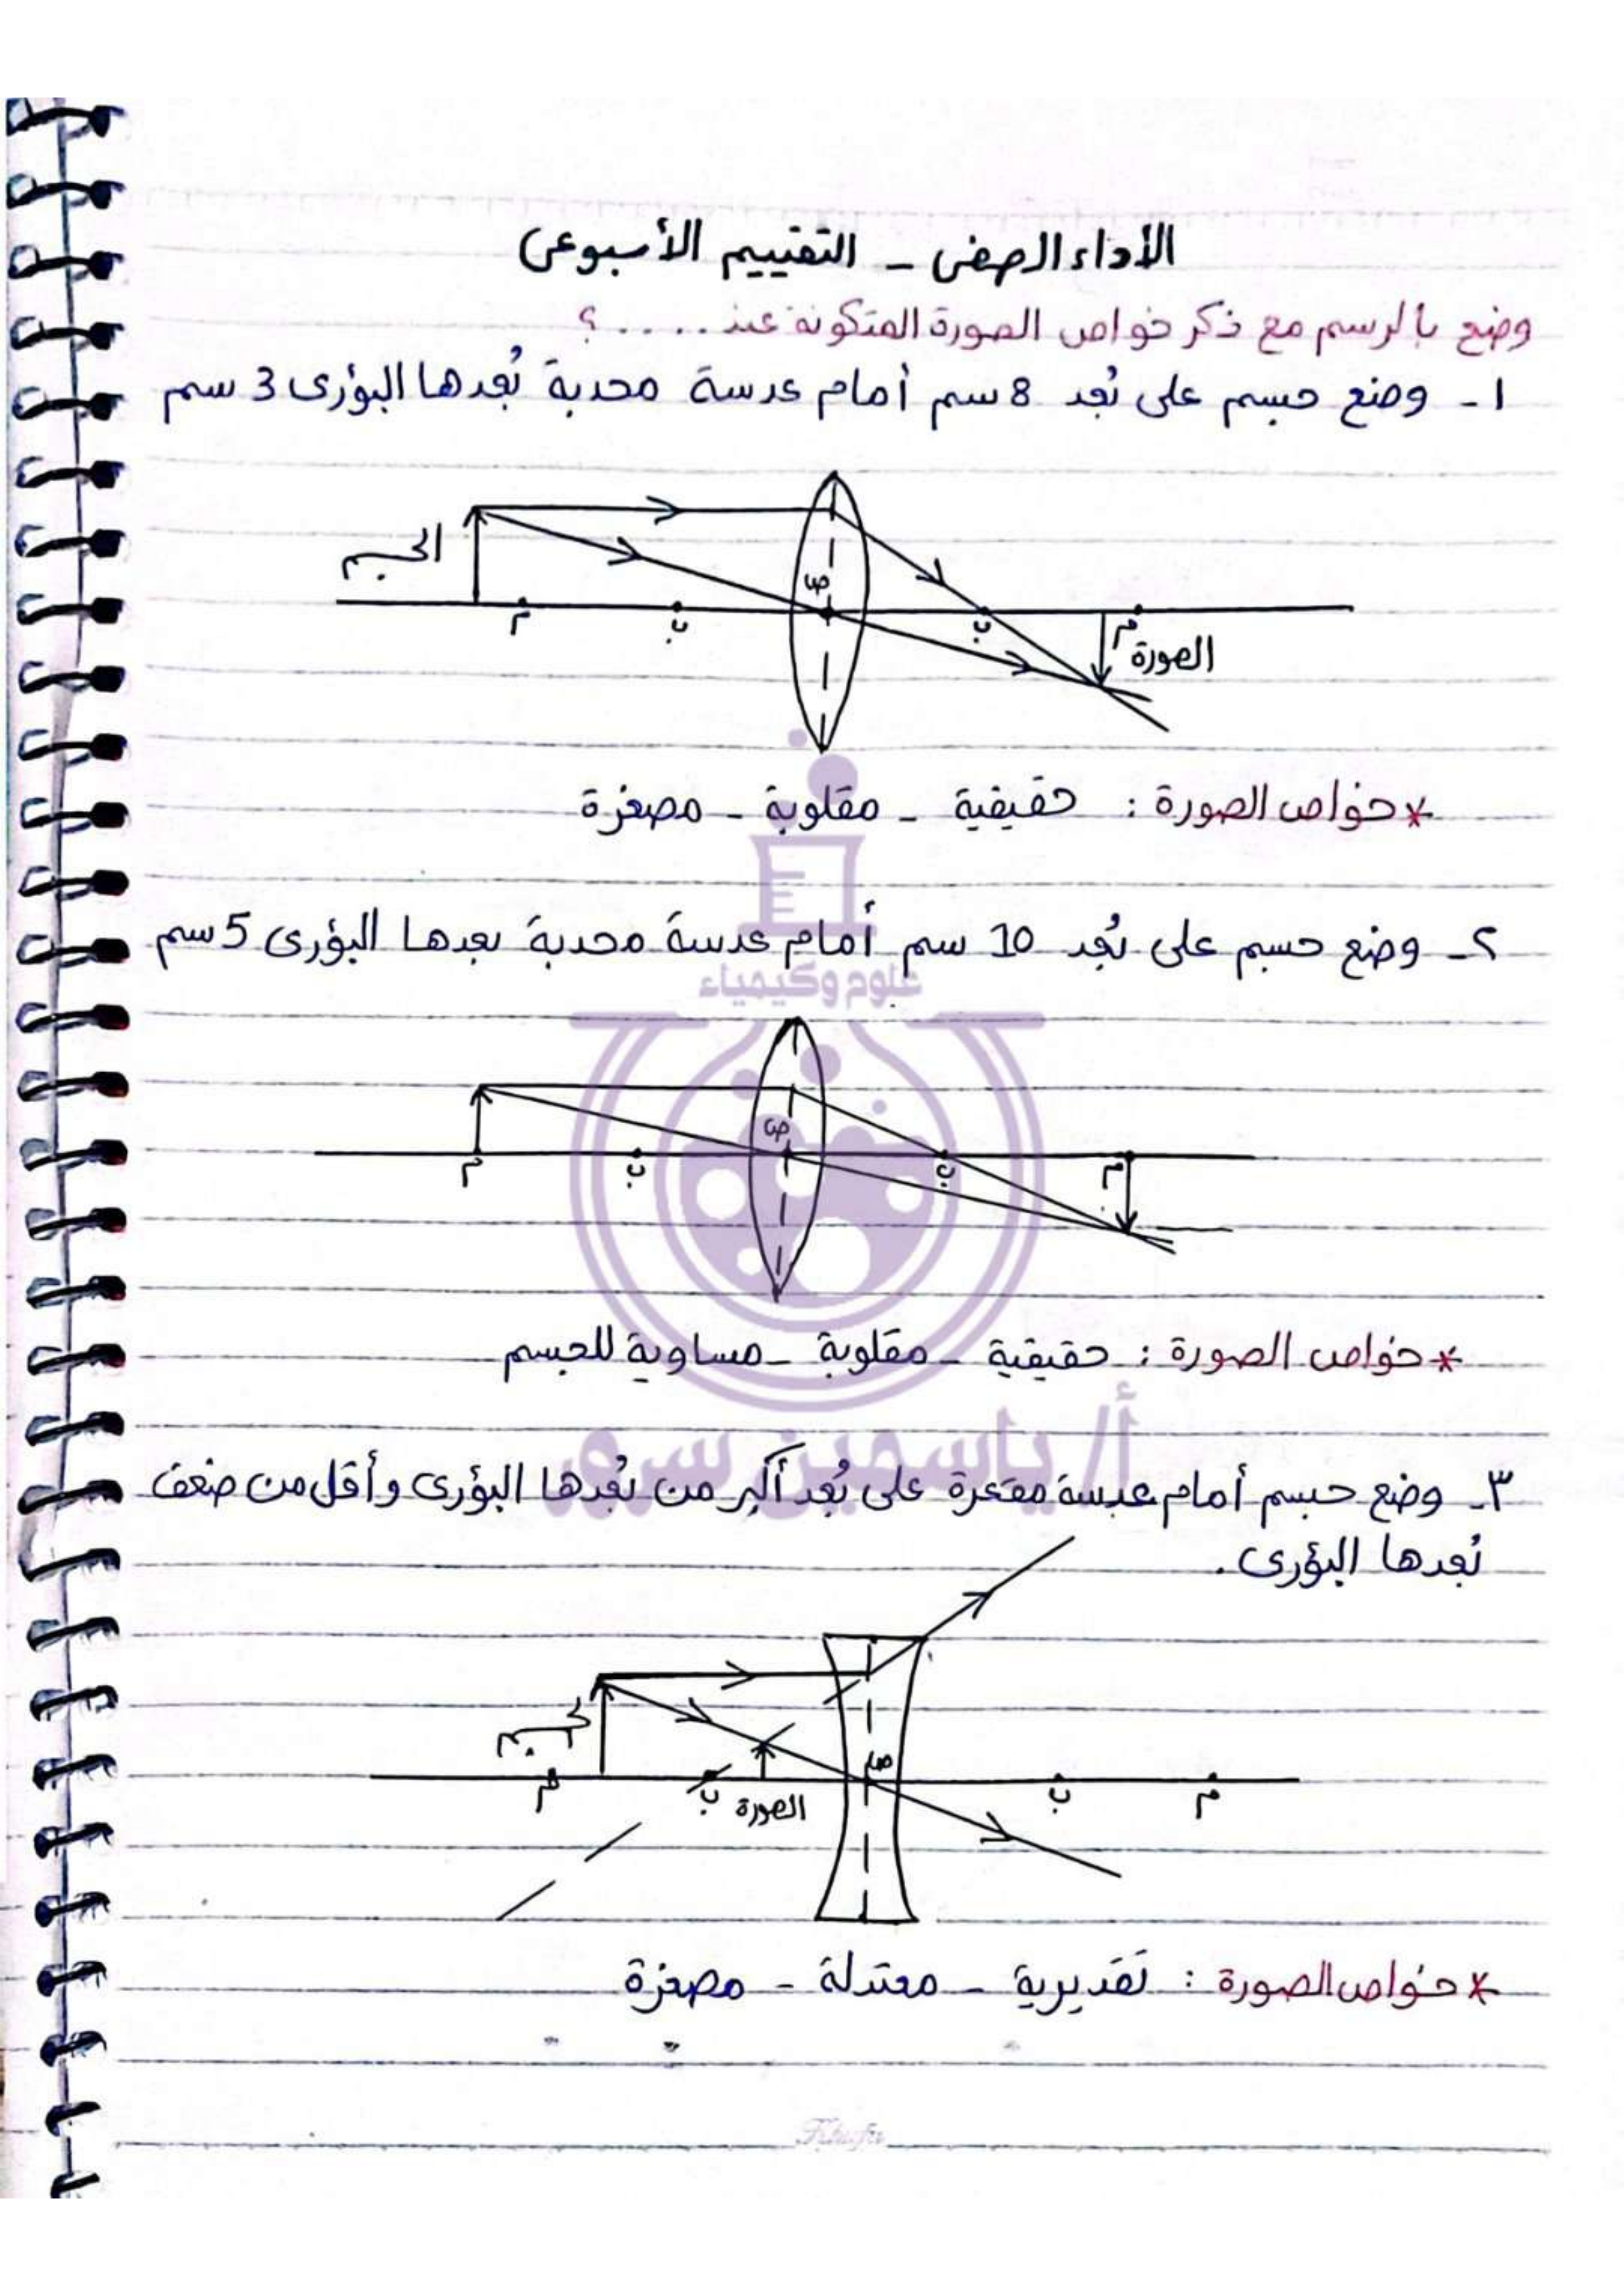 الأداء الصفى - التقييم الأسبوعى
وضح بالرسم مع ذكر خواص الصورة المتكونة عند .....؟
١- وضع جسم على بُعد 8 سم أمام عدسة محدبة بُعدها البؤرى 3 سم
الجسم
ص
م
ب
ب
م
الصورة
* خواص الصورة : حقيقية - مقلوبة - مصغرة
٢- وضع جسم على بُعد 10 سم أمام عدسة محدبة بعدها البؤرى 5 سم
علوم وكيمياء
ص
م
ب
ب
م
* خواص الصورة : حقيقية - مقلوبة - مساوية للجسم
أ/ ياسمين
٣- وضع جسم أمام عدسة مقعرة على بُعد أكبر من بُعدها البؤرى وأقل من ضعف
بُعدها البؤرى .
الجسم
ص
م
ب
الصورة
ب
م
* خواص الصورة : تقديرية - معتدلة - مصغرة